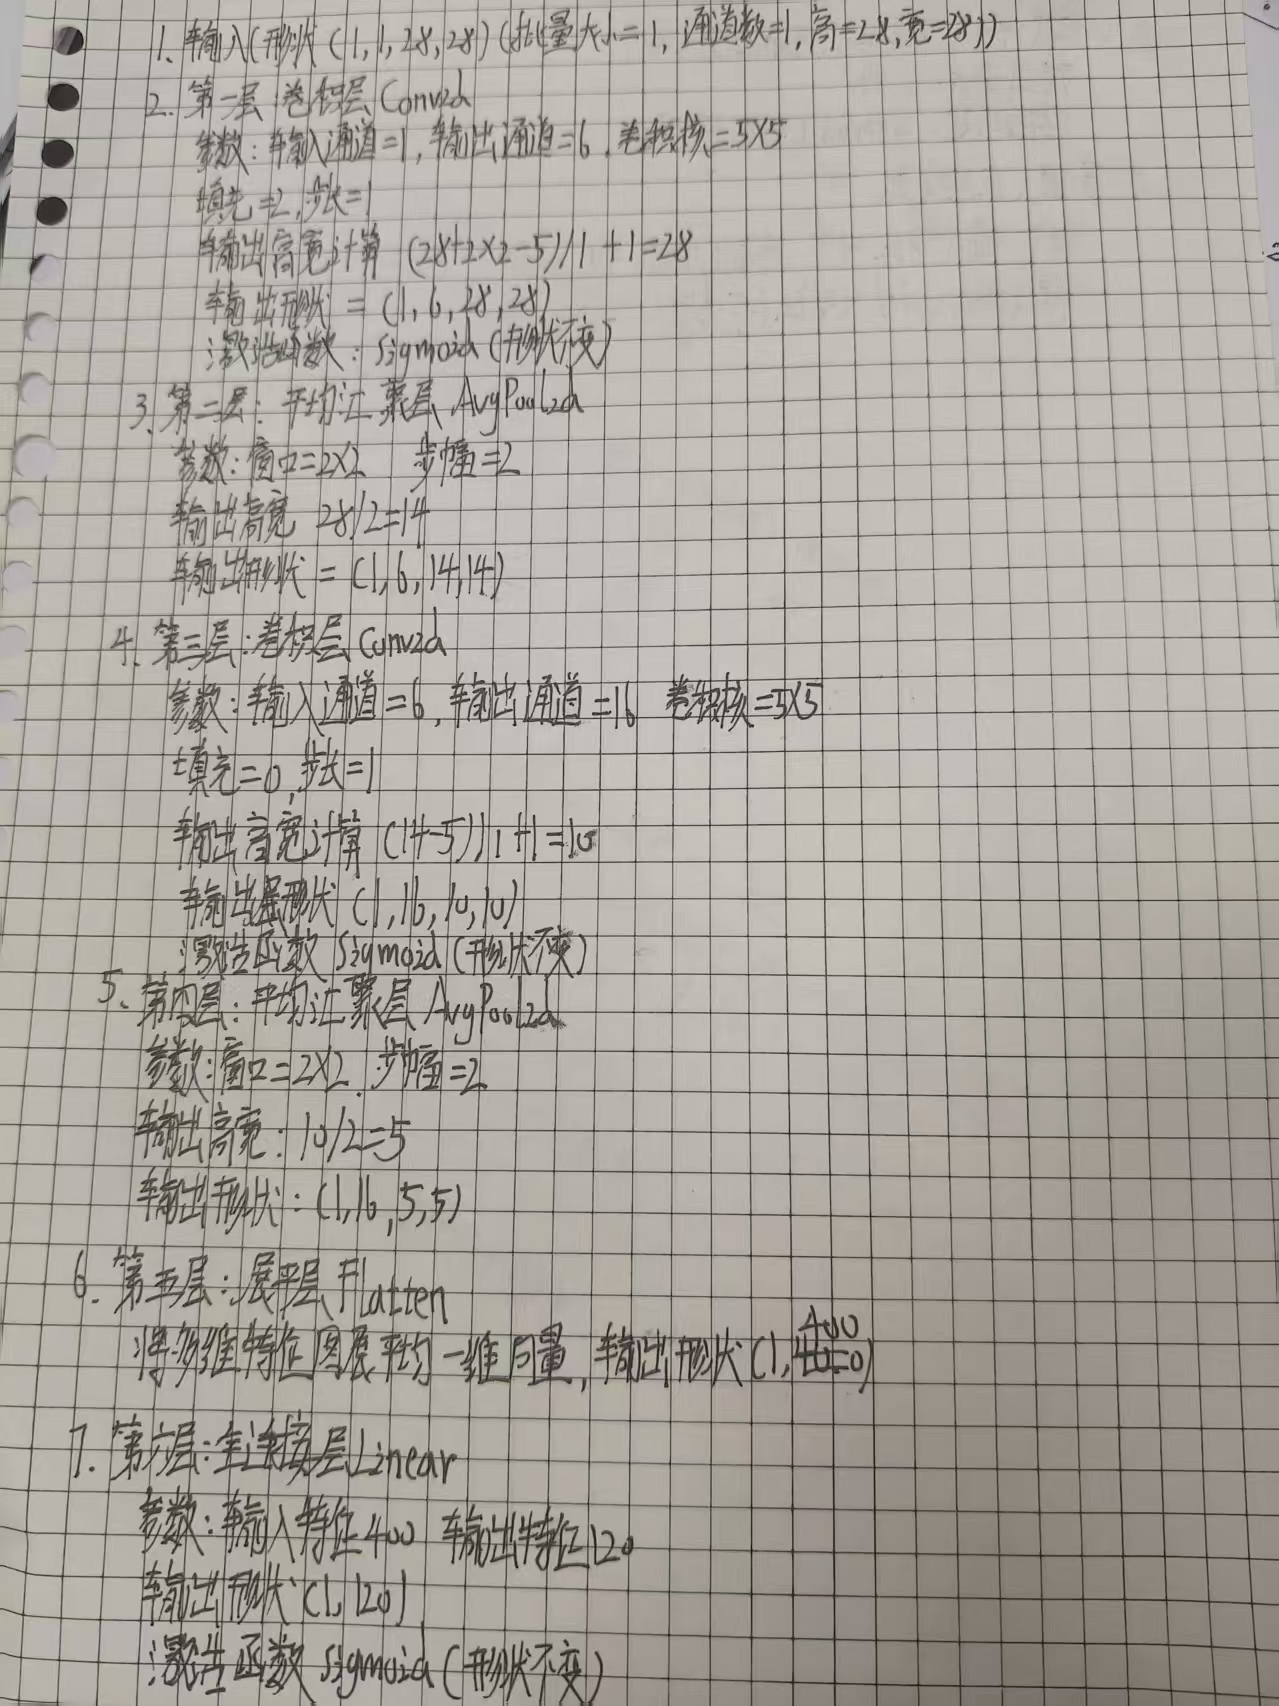 1. 输入(形状 (1,1,28,28) (批量大小=1, 通道数=1, 高=28,宽=28))
2. 第一层:卷积层 Conv2d
参数: 输入通道=1, 输出通道=6, 卷积核=5×5
填充=2, 步长=1
输出高宽计算 (28+2×2-5)/1 +1=28
输出形状 = (1, 6, 28, 28)
激活函数: Sigmoid (形状不变)
3. 第二层: 平均汇聚层 AvgPool2d
参数: 窗口=2×2 步幅=2
输出高宽 28/2=14
输出形状 = (1,6,14,14)
4. 第三层:卷积层 Conv2d
参数: 输入通道=6, 输出通道=16 卷积核=5×5
填充=0, 步长=1
输出高宽计算 (14-5)/1 +1=10
输出形状 (1,16,10,10)
激活函数 Sigmoid (形状不变)
5. 第四层: 平均汇聚层 AvgPool2d
参数: 窗口=2×2, 步幅=2
输出高宽: 10/2=5
输出形状: (1,16,5,5)
6. 第五层: 展平层 Flatten
将多维特征图展平均一维向量, 输出形状 (1,400)
7. 第六层: 全连接层 Linear
参数: 输入特征400 输出特征120
输出形状 (1,120)
激活函数 Sigmoid (形状不变)